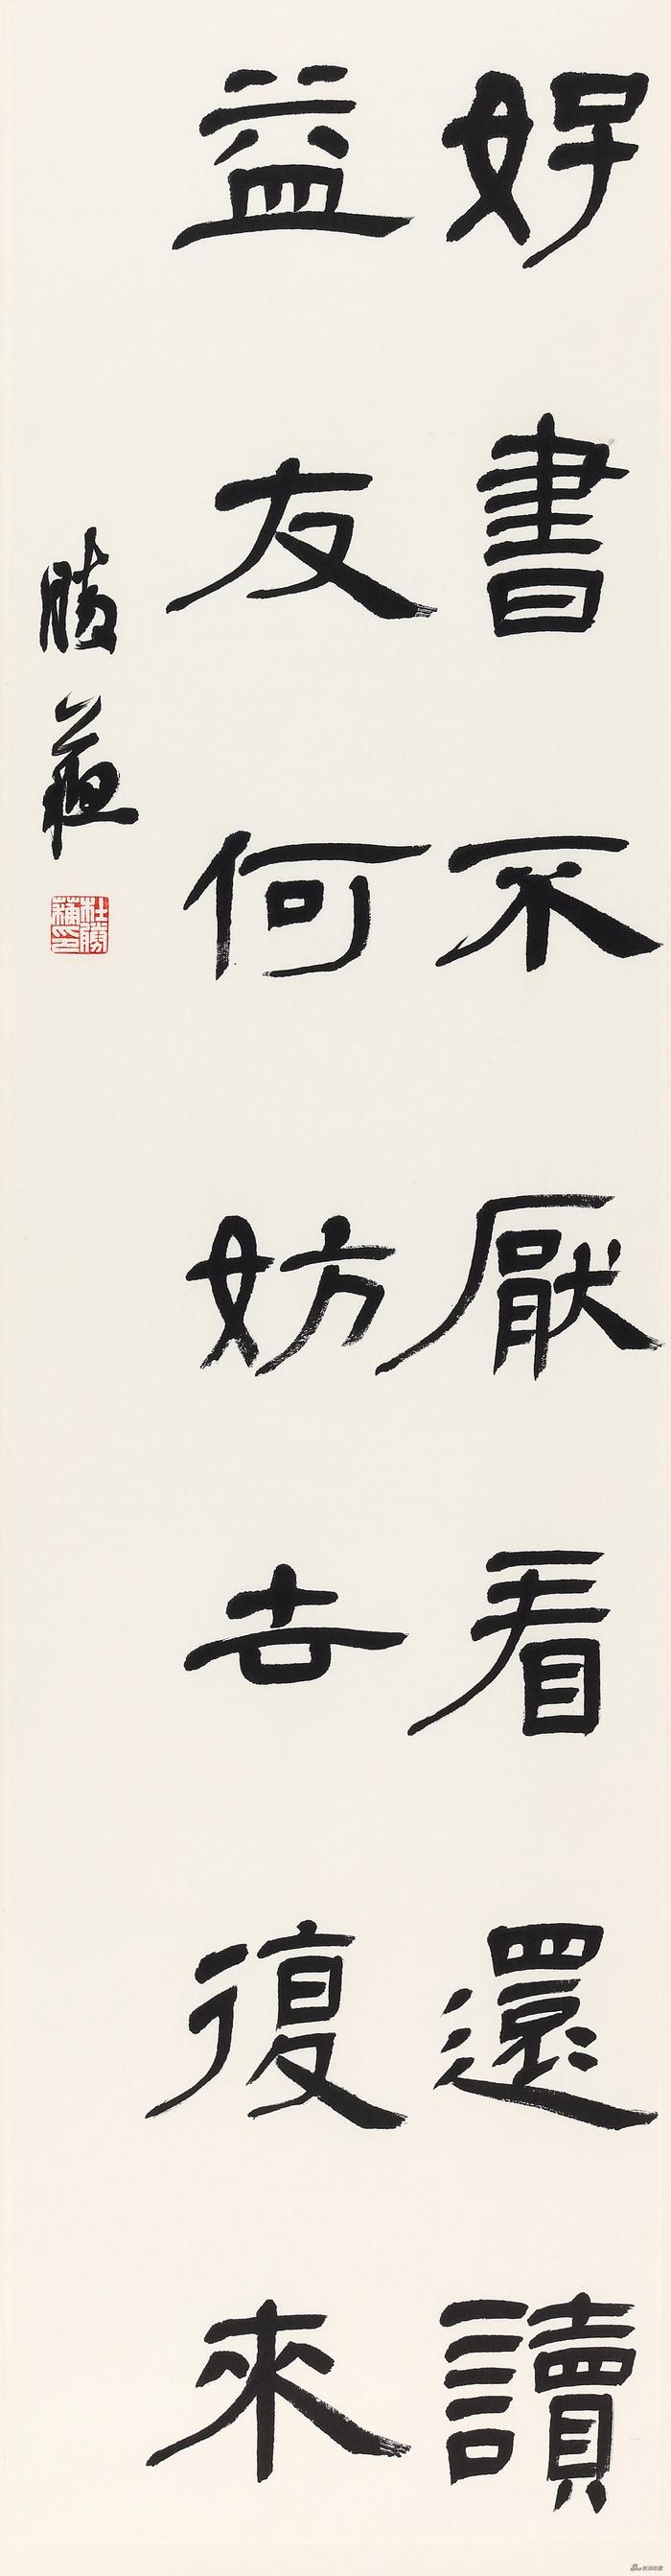 好書不厭看還讀
益友何妨去復來
勝蘓
杜勝蘓印